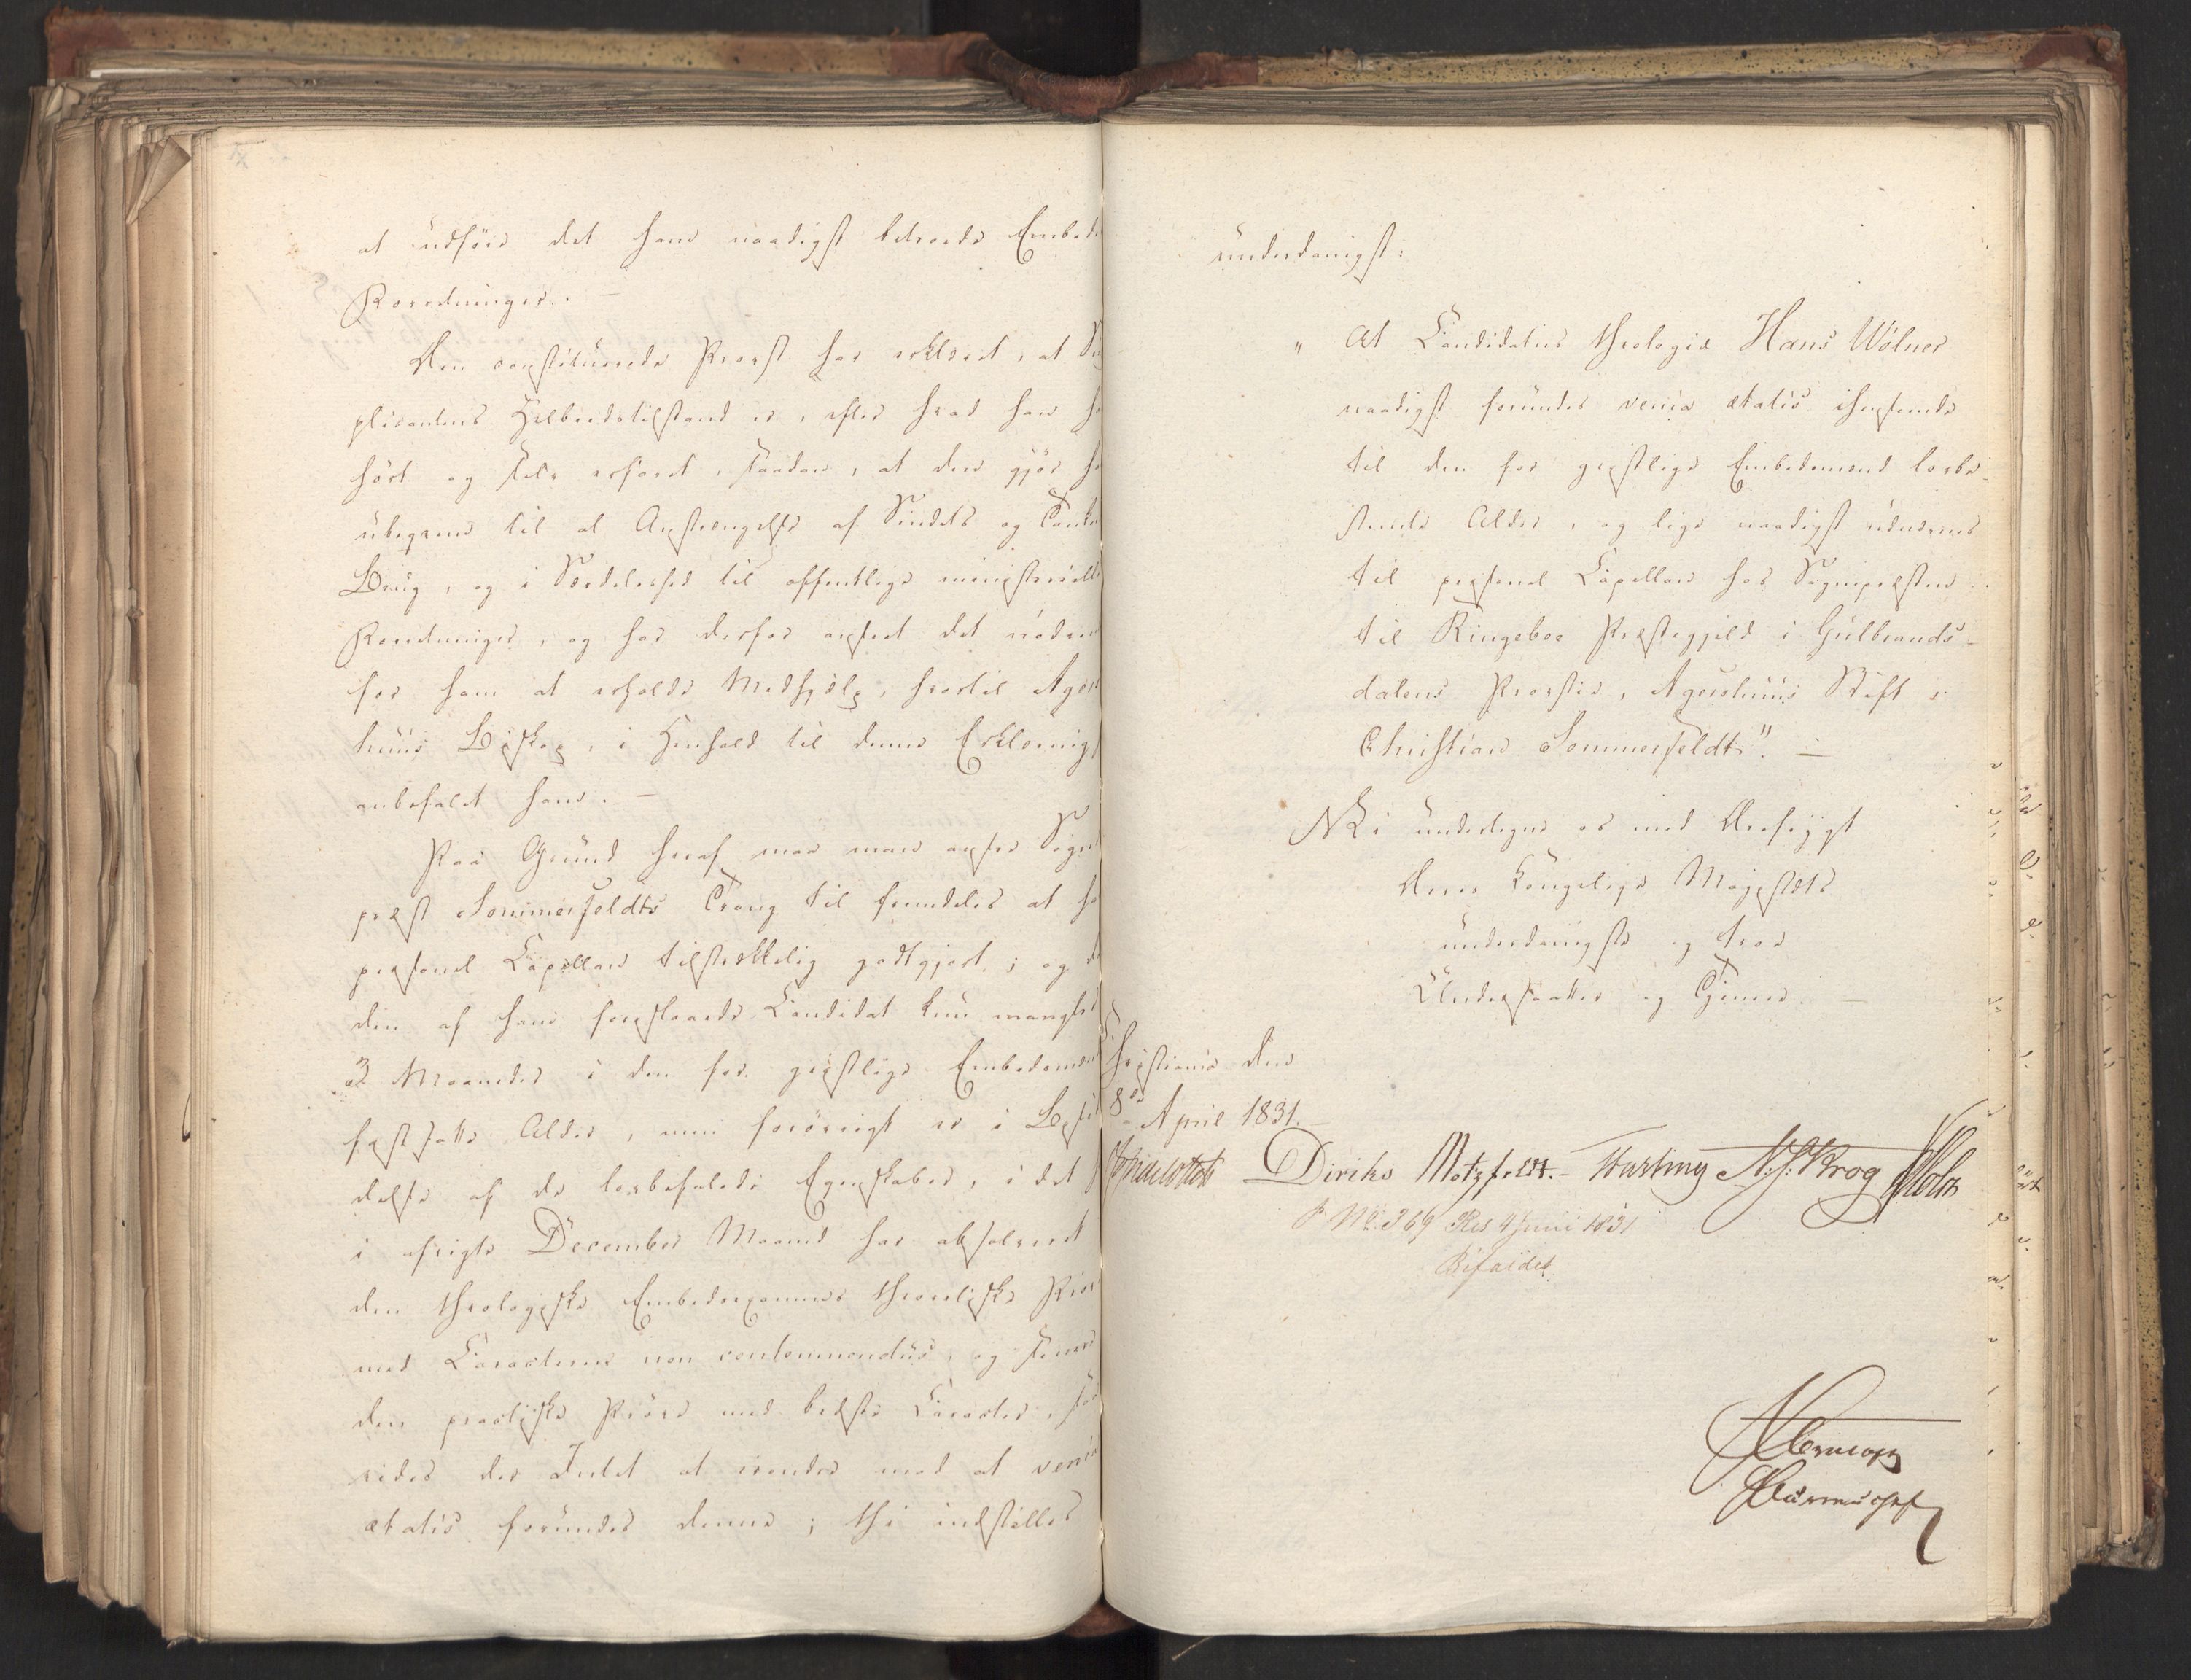 at udføre det ham naadigst betroede Embeds
Forretninger. —
Den constituerede Provst har erklæret, at Sup
plicantens Helbredstilstand er, efter hvad han ha
hørt og selv erfaret, saadan, at den gjør ha
ubeqvem til al Anstrengelse af Sindets og Tanke
Brug, og i Særdeleshed til offentlige ministerielle
Forretninger, og har derfor anseet det nødven
for ham at erholde Medhjælp, hvortil Agers
huus Biskop, i Henhold til denne Erklæring,
anbefalet ham. —
Paa Grund heraf maa man ansee Sogne
præst Sommerfeldts Trang til fremdeles at ha
personel Capellan tilstrækkelig godtgjort; og d
den af ham foreslaaede Candidat kun mangler
3 Maaneder i den for geistlige Embedsmænd
fastsatte Alder, men forøvrigt er i Besid
delse af de lovbefalede Egenskaber, i det h
i afvigte December Maaned har absolveret
den theologiske Embedsexamens theoretiske Prøve
med Caracteren non contemnendus, og senere
den practiske Prøve med bedste Caracter, sy
vides der Intet at erindre mod at venia
ætatis forundes denne; thi indstilles
underdanigst:
" At Candidatus theologiæ Hans Wölner
naadigst forundes venia ætatis i Henseende
til den for geistlige Embedsmænd lovbe-
stemte Alder, og lige naadigst udnævnes
til personel Capellan hos Sognepræsten
til Ringeboe Præstegjeld i Gulbrands-
dalens Provstie, Agershuus Stift
Christian Sommerfeldt". —
Vi undertegne os med Ærefrygt
Deres Kongelige Majestæts
underdanigste og troe
Undersaatter og Tjenere. —
Christiania den
8de April 1831.
Diriks Motzfeldt. N. J. Krog
P No. 369 Res 4 Juni 1831
Bifaldet.